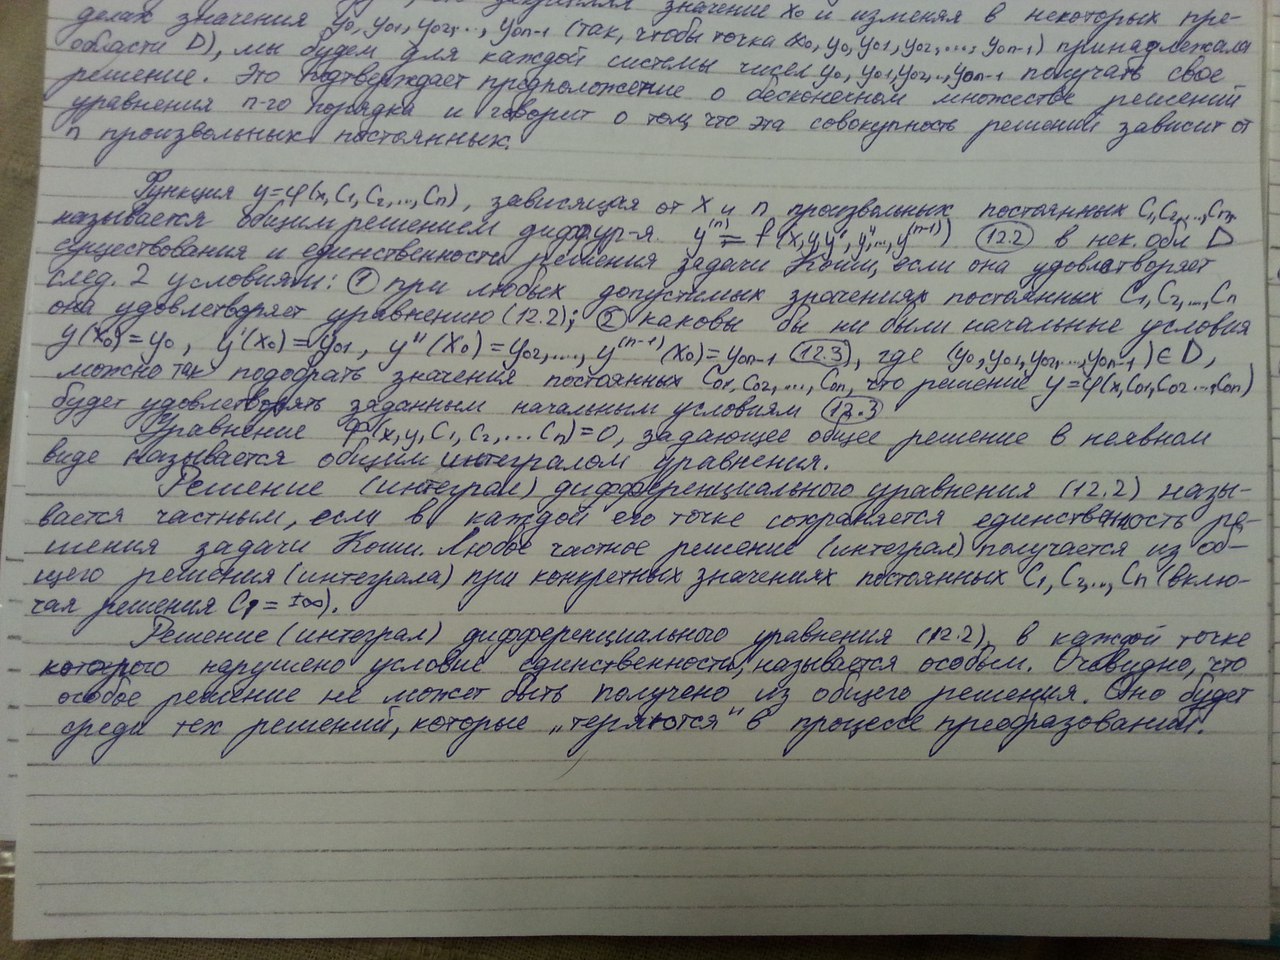 закрепляя значение x₀ и изменяя в некоторых пре-
делах значения y₀, y₀₁, y₀₂,..., y₀ₙ₋₁ (так, чтобы точка (x₀, y₀, y₀₁, y₀₂, ..., y₀ₙ₋₁) принадлежала
области D), мы будем для каждой системы чисел y₀, y₀₁, y₀₂,.., y₀ₙ₋₁ получать свое
решение. Это подтверждает предположение о бесконечном множестве решений
уравнения n-го порядка и говорит о том, что эта совокупность решений зависит от
n произвольных постоянных.
Функция y=φ(x, C₁, C₂, ..., Cₙ), зависящая от x и n произвольных постоянных C₁, C₂,..., Cₙ,
называется общим решением диф. ур-я. y⁽ⁿ⁾ = f(x, y, y', y'',..., y⁽ⁿ⁻¹⁾) (12.2) в нек. обл D
существования и единственности решения задачи Коши, если она удовлетворяет
след. 2 условиям: ① при любых допустимых значениях постоянных C₁, C₂,..., Cₙ
она удовлетворяет уравнению (12.2); ② каковы бы ни были начальные условия
y(x₀)=y₀, y'(x₀)=y₀₁, y''(x₀)=y₀₂,..., y⁽ⁿ⁻¹⁾(x₀)=y₀ₙ₋₁ (12.3), где (y₀, y₀₁, y₀₂,..., y₀ₙ₋₁) ∈ D,
можно так подобрать значения постоянных C₀₁, C₀₂, ..., C₀ₙ, что решение y=φ(x, C₀₁, C₀₂ ..., C₀ₙ)
будет удовлетворять заданным начальным условиям (12.3)
Уравнение Φ(x, y, C₁, C₂, ... Cₙ)=0, задающее общее решение в неявном
виде называется общим интегралом уравнения.
Решение (интеграл) дифференциального уравнения (12.2) назы-
вается частным, если в каждой его точке сохраняется единственность ре-
шения задачи Коши. Любое частное решение (интеграл) получается из об-
щего решения (интеграла) при конкретных значениях постоянных C₁, C₂,..., Cₙ (вклю-
чая решения C₁ = ±∞).
Решение (интеграл) дифференциального уравнения (12.2), в каждой точке
которого нарушено условие единственности, называется особым. Очевидно, что
особое решение не может быть получено из общего решения. Оно будет
среди тех решений, которые „теряются" в процессе преобразований.